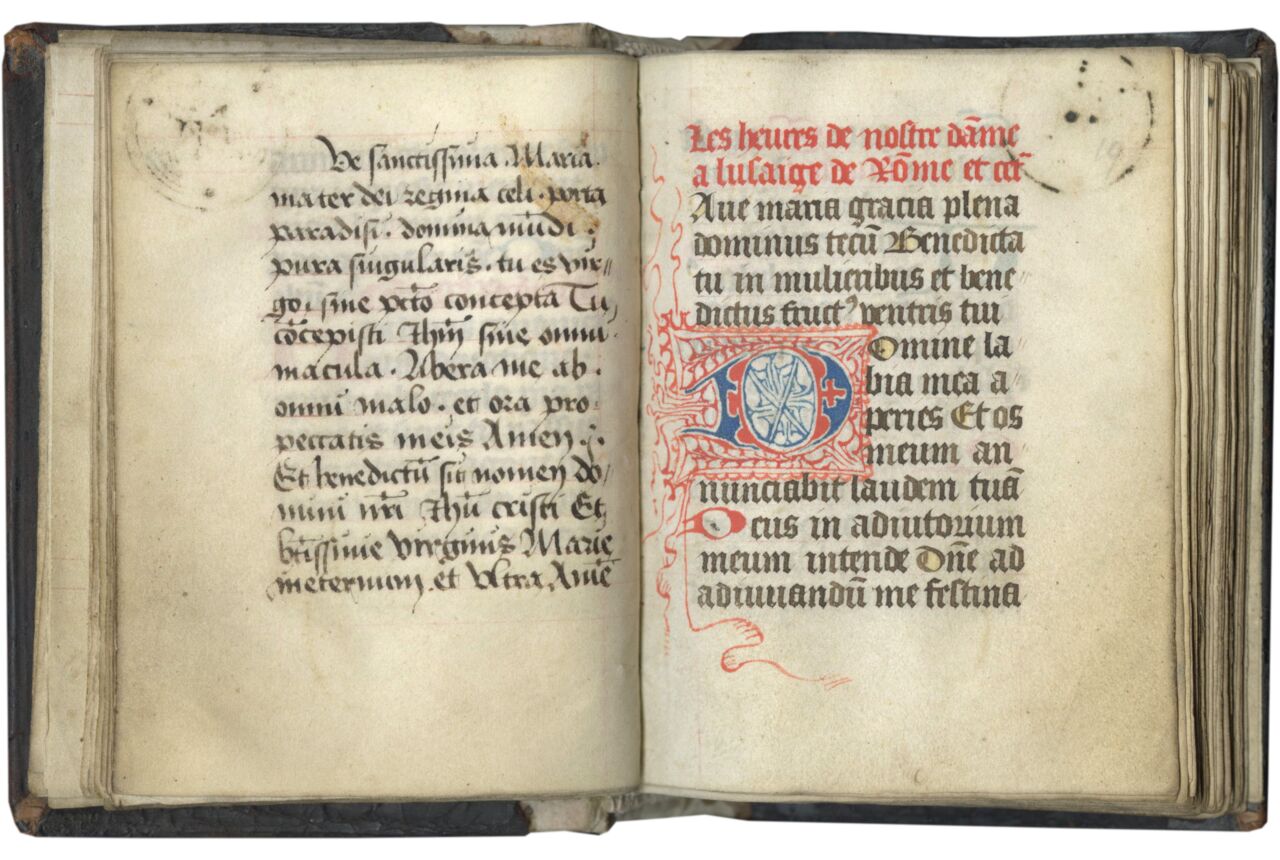 Ve sanctissima Maria.
mater dei regina celi. porta
paradisi. domina mūdi.
pura singularis. tu es vir
go sine pctō concepta Tu
cōcepisti Ihm̄ sine omni
macula. libera me ab
omni malo. et ora pro
peccatis meis Amen.
Et benedictū sit nomen do
mini nr̄i Ihū cristi Et
bt̄issime virginis Marie
ineternum. et vltra. Amē
Les heures de nostre dāme
a lusaige de Rōme et cet̄
Aue maria gracia plena
dominus tecū Benedicta
tu in mulieribus et bene
dictus fructꝰ ventris tui
Domine la
bia mea a
peries Et os
meum an
nunciabit laudem tuā
Deus in adiutorium
meum intende Dn̄e ad
adiuuandū me festina
19